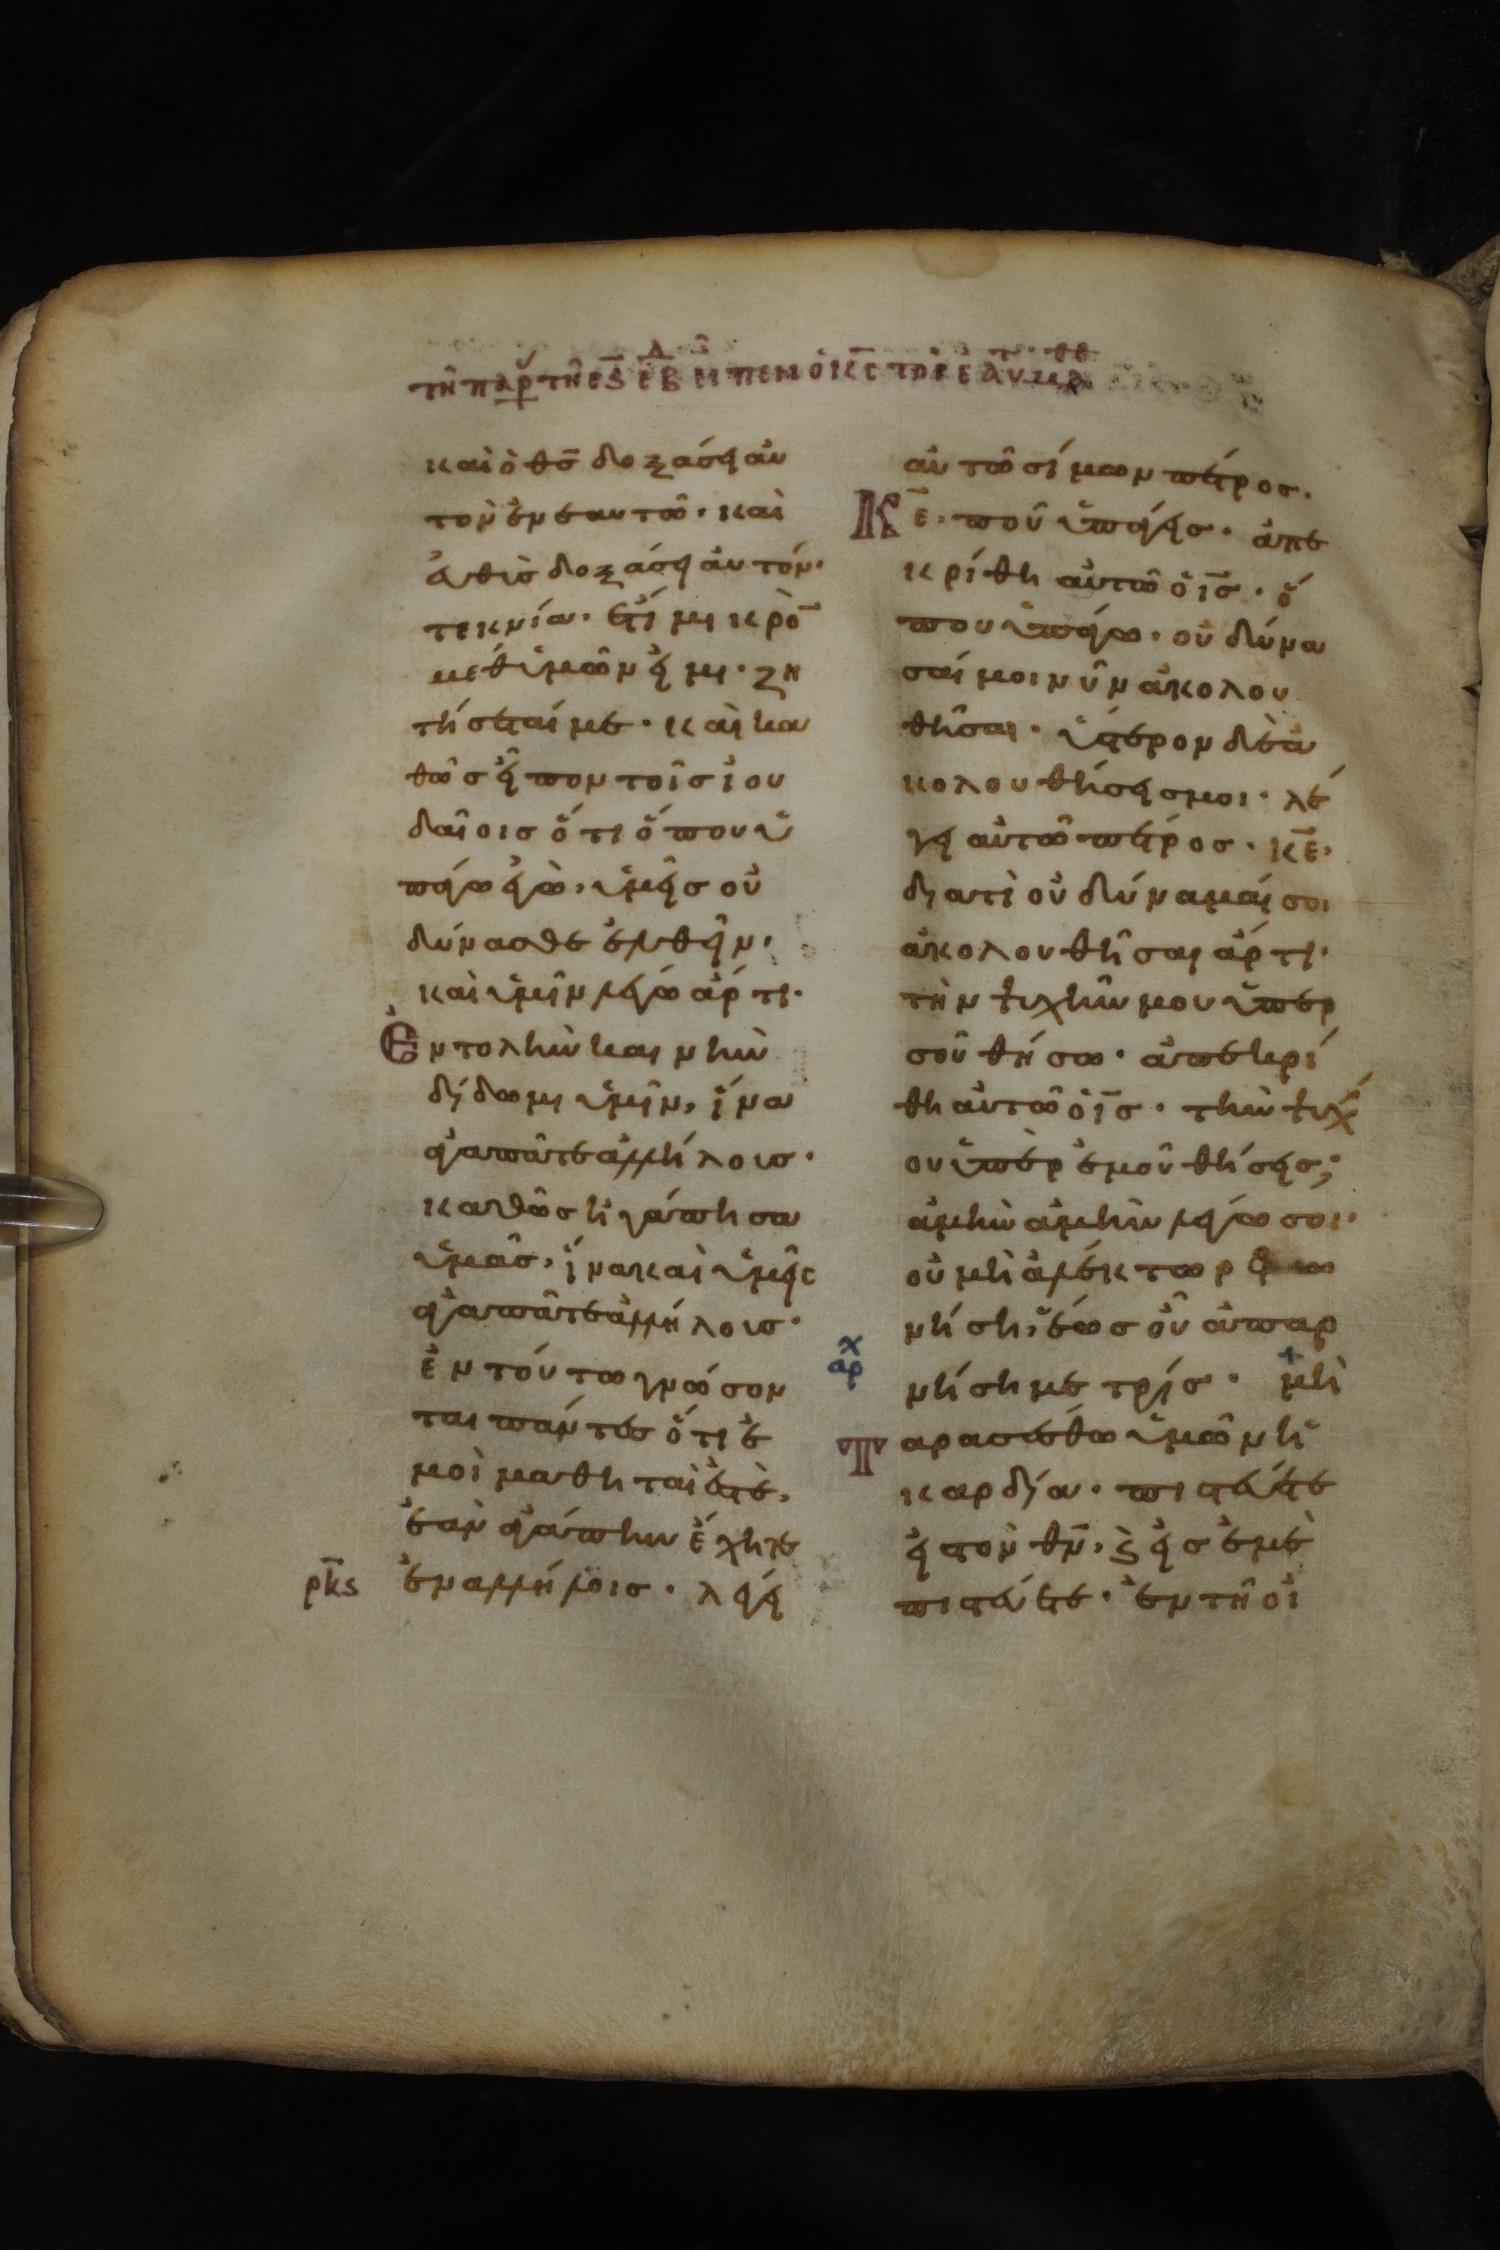 τῆ παρ τῆ ε ς εβδ εἶπεν ὁ κς τοῖς ε αυ μαθ
καὶ ὁ θσ̅ δοξάσει αὐ
τὸν ἐν εαυτῶ· καὶ
ἐυθὺσ δοξάσει αὐτόν·
τεκνία· ἔτι μικρὸ̅
μεθ ὑμῶν εἰμι· ζη
τήσεται με· καὶ κα
θῶσ εἶπον τοῖσ ἰου
δαίοισ ὅτι ὅπου ὑ
πάγω ἐγὼ, ὑμεῖσ οὐ
δύνασθε ἐλθεῖν,
καὶ ὑμῖν λέγω ἄρτι·
Ἐντολὴν καινὴν
δίδωμι ὑμῖν, ἵνα
ἀγαπᾶτε ἀλλήλουσ·
καθῶσ ἠγάπησα
ὑμᾶσ, ἵνα καὶ ὑμεῖς
ἀγαπᾶτε ἀλλήλουσ·
ἐν τούτω γνώσον
ται πάντεσ ὅτι ἐ
μοὶ μαθηταὶ ἐστὲ,
ἐὰν ἀγάπην ἔχητε
ρκς ἐν ἀλλήλοισ· λέγει
αὐτῶ σίμων πέτροσ·
Κε̅· ποῦ ὑπάγεισ· ἀπε
κρίθη αὐτῶ ὁ ισ̅· ὅ
που ὑπάγω· οὐ δύνα
σαί μοι νῦν ἀκολου
θῆσαι· ὕστερον δὲ ἀ
κολουθήσεισ μοι· λέ
γει αὐτῶ πέτροσ· κε̅,
διατὶ οὐ δύναμαί σοι
ἀκολουθῆσαι ἄρτι·
τὴν ψυχήν μου ὑπὲρ
σοῦ θήσω· ἀπεκρί
θη αὐτῶ ὁ ισ̅· τὴν ψυχ́
ου ὑπὲρ ἐμοῦ θήσεισ;
ἀμὴν ἀμὴν λέγω σοι·
οὐ μὴ ἀλέκτωρ φω
νήση, ἕωσ οὗ ἀπαρ
αρχ νήση με τρίσ· + μὴ
Ταρασσέσθω ὑμῶν ἡ
καρδία· πιστεύετε
εἰσ τὸν θν̅, ϗ εἰσ ἐμὲ
πιστεύετε· ἐν τῆ οἰ